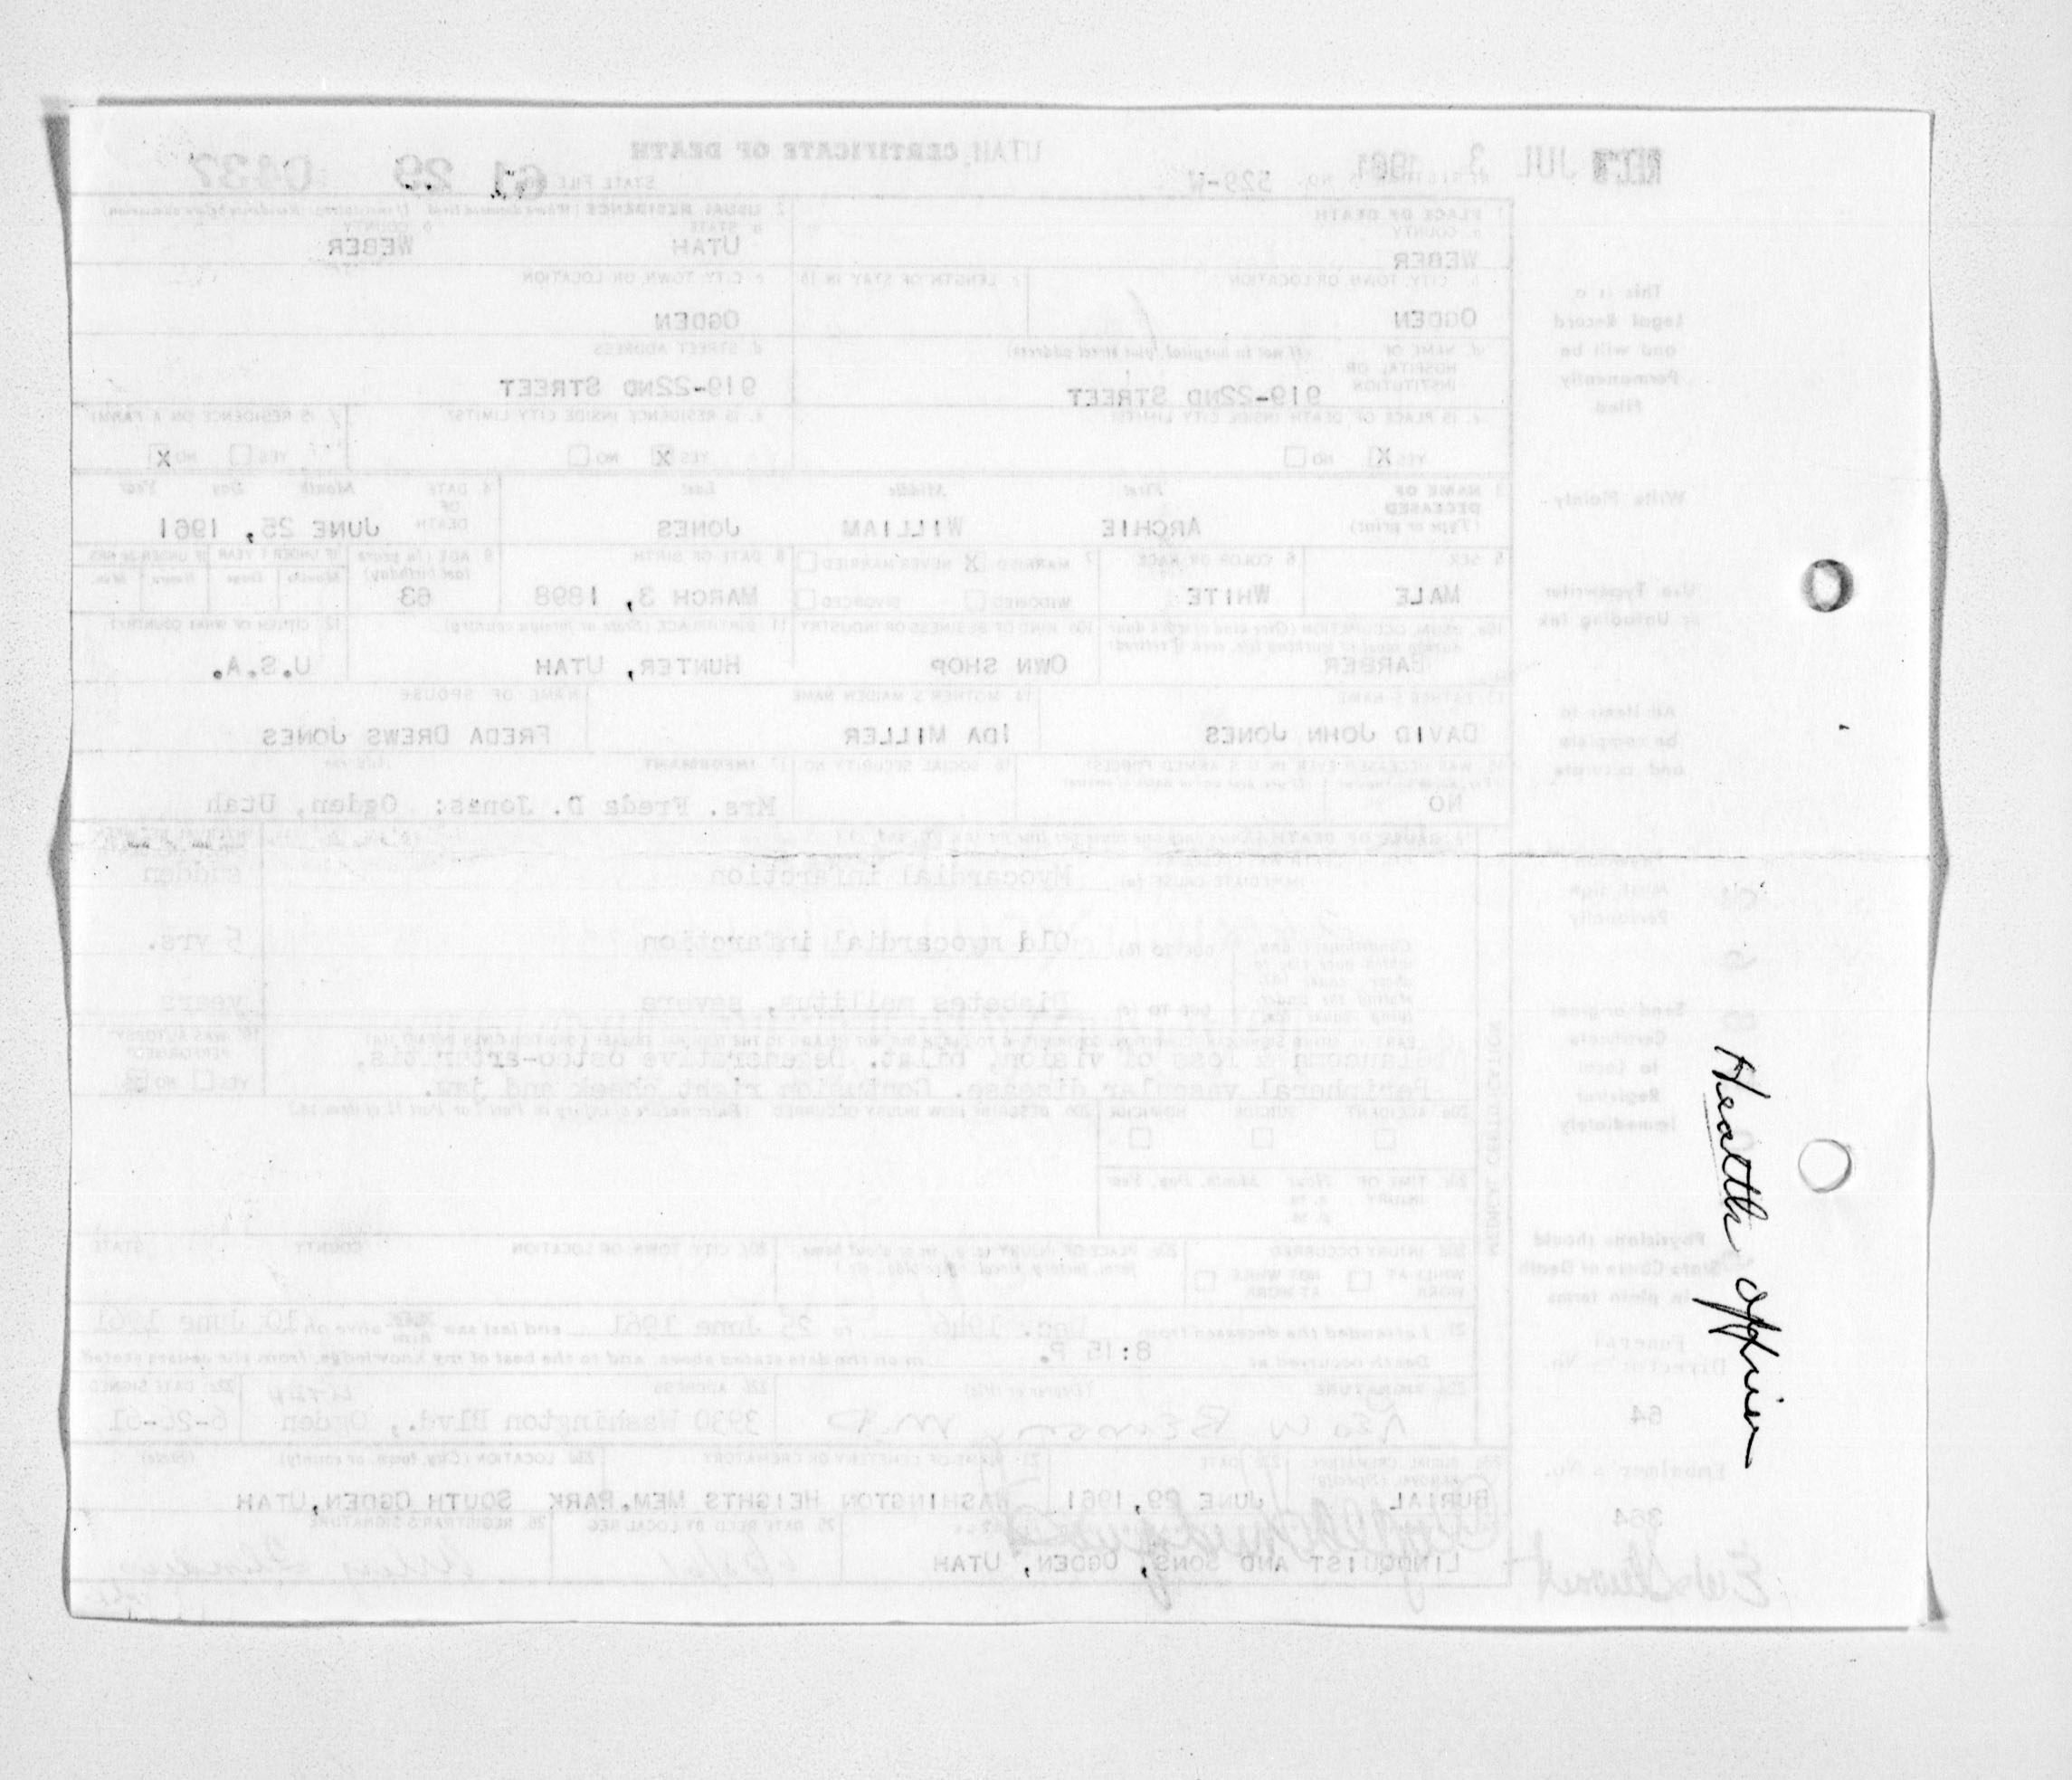 REC'D JUL 3 1961
UTAH, CERTIFICATE OF DEATH
REGISTRAR'S NO. 529-W
STATE FILE NO. 61 29 0437
1. PLACE OF DEATH
a. COUNTY
WEBER
2. USUAL RESIDENCE (Where deceased lived. If institution: Residence before admission)
a. STATE
UTAH
b. COUNTY
WEBER
b. CITY, TOWN, OR LOCATION
OGDEN
c. LENGTH OF STAY IN 1b
c. CITY, TOWN, OR LOCATION
OGDEN
d. NAME OF HOSPITAL OR INSTITUTION (If not in hospital, give street address)
919-22ND STREET
d. STREET ADDRESS
919-22ND STREET
e. IS PLACE OF DEATH INSIDE CITY LIMITS?
YES X NO
e. IS RESIDENCE INSIDE CITY LIMITS?
YES X NO
f. IS RESIDENCE ON A FARM?
YES NO X
3. NAME OF DECEASED (Type or print)
First Middle Last
ARCHIE WILLIAM JONES
4. DATE OF DEATH Month Day Year
JUNE 25, 1961
5. SEX
MALE
6. COLOR OR RACE
WHITE
7. MARRIED X NEVER MARRIED
WIDOWED DIVORCED
8. DATE OF BIRTH
MARCH 3, 1898
9. AGE (In years last birthday)
63
IF UNDER 1 YEAR IF UNDER 24 HRS
Months Days Hours Min.
10a. USUAL OCCUPATION (Give kind of work done during most of working life, even if retired)
BARBER
10b. KIND OF BUSINESS OR INDUSTRY
OWN SHOP
11. BIRTHPLACE (State or foreign country)
HUNTER, UTAH
12. CITIZEN OF WHAT COUNTRY?
U.S.A.
13. FATHER'S NAME
DAVID JOHN JONES
14. MOTHER'S MAIDEN NAME
IDA MILLER
NAME OF SPOUSE
FREDA DREWS JONES
15. WAS DECEASED EVER IN U.S. ARMED FORCES?
NO
16. SOCIAL SECURITY NO.
17. INFORMANT Address
Mrs. Freda D. Jones: Ogden, Utah
18. CAUSE OF DEATH
IMMEDIATE CAUSE (a) Myocardial infarction
sudden
DUE TO (b) Old myocardial infarction
5 yrs.
DUE TO (c) Diabetes mellitus, severe
years
& loss of vision, bilat. Degenerative osteo-arthritis.
Peripheral vascular disease. Contusion right cheek and jaw.
19. WAS AUTOPSY PERFORMED?
YES NO
MEDICAL CERTIFICATION
20a. ACCIDENT SUICIDE HOMICIDE
20b. DESCRIBE HOW INJURY OCCURRED (Enter nature of injury in Part I or Part II of item 18.)
20c. TIME OF INJURY Hour Month, Day, Year
a.m.
p.m.
20d. INJURY OCCURRED
WHILE AT WORK NOT WHILE AT WORK
20e. PLACE OF INJURY (e.g., in or about home, farm, factory, street, office bldg., etc.)
20f. CITY, TOWN, OR LOCATION COUNTY STATE
21. I attended the deceased from Dec. 1946 to 25 June 1961 and last saw him alive on 10 June 1961
Death occurred at 8:15 P. m on the date stated above, and to the best of my knowledge, from the causes stated.
22a. SIGNATURE (Degree or title)
Leo W Benson, MD
22b. ADDRESS
3930 Washington Blvd., Ogden
22c. DATE SIGNED
6-26-61
23a. BURIAL, CREMATION, REMOVAL (Specify)
BURIAL
23b. DATE
JUNE 29, 1961
23c. NAME OF CEMETERY OR CREMATORY
WASHINGTON HEIGHTS MEM. PARK
23d. LOCATION (City, town, or county) (State)
SOUTH OGDEN, UTAH
LINDQUIST AND SONS, OGDEN, UTAH
25. DATE REC'D BY LOCAL REG.
26. REGISTRAR'S SIGNATURE
This is a
Legal Record
and will be
Permanently
Filed
Write Plainly
Use Typewriter
or Unfading Ink
All Items to
be complete
and accurate
Must Sign
Personally
Send original
Certificate
to Local
Registrar
Immediately
Physicians should
State Cause of Death
in plain terms
Funeral
Director's No.
64
Embalmer's No.
364
Health officer